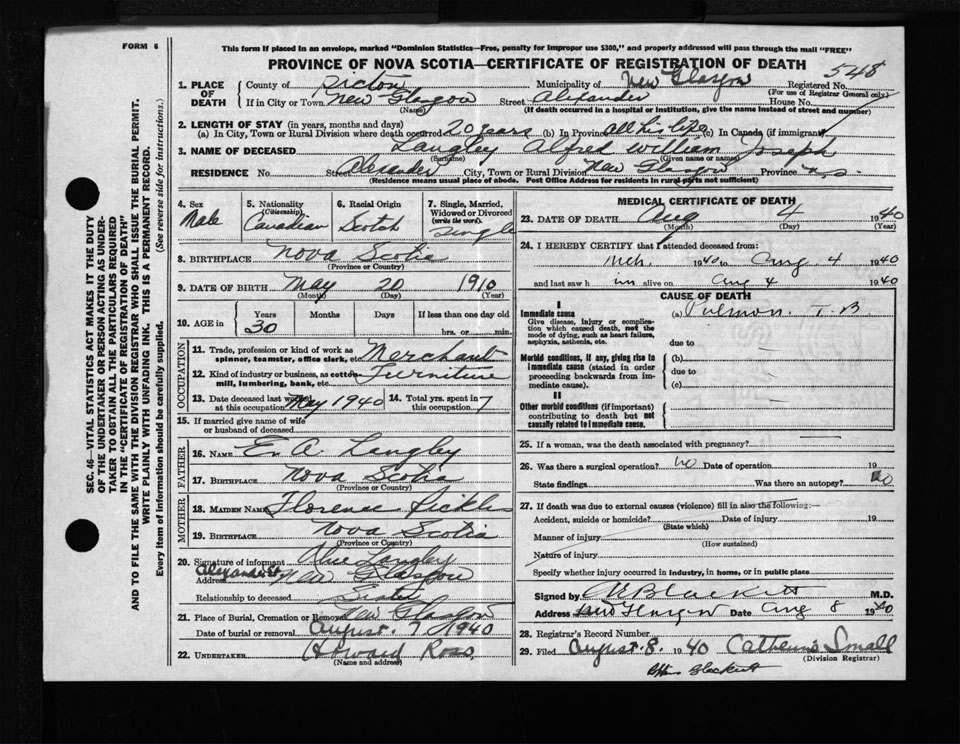 FORM 6
This form if placed in an envelope, marked "Dominion Statistics—Free, penalty for improper use $300," and properly addressed will pass through the mail "FREE"
PROVINCE OF NOVA SCOTIA—CERTIFICATE OF REGISTRATION OF DEATH
548
1. PLACE OF DEATH
County of Pictou Municipality of New Glasgow Registered No.
(For use of Registrar General only)
If in City or Town New Glasgow Street Alexander House No.
(Name) (If death occurred in a hospital or institution, give the name instead of street and number)
2. LENGTH OF STAY (in years, months and days)
(a) In City, Town or Rural Division where death occurred 20 years (b) In Province All his life (c) In Canada (if immigrant)
3. NAME OF DECEASED Langley Alfred William Joseph
(Surname) (Given name or names)
RESIDENCE No. Street Alexander City, Town or Rural Division New Glasgow Province N.S.
(Residence means usual place of abode. Post Office Address for residents in rural parts not sufficient)
4. Sex Male
5. Nationality (Citizenship) Canadian
6. Racial Origin Scotch
7. Single, Married, Widowed or Divorced (write the word) Single
8. BIRTHPLACE Nova Scotia
(Province or Country)
9. DATE OF BIRTH May 20 1910
(Month) (Day) (Year)
10. AGE in Years Months Days If less than one day
30 hrs. or min.
OCCUPATION
11. Trade, profession or kind of work as spinner, teamster, office clerk, etc. Merchant
12. Kind of industry or business, as cotton mill, lumbering, bank, etc. Furniture
13. Date deceased last worked at this occupation May 1940
14. Total yrs. spent in this occupation 7
15. If married give name of wife or husband of deceased
FATHER
16. NAME E. A. Langley
17. BIRTHPLACE Nova Scotia
(Province or Country)
MOTHER
18. MAIDEN NAME Florence
19. BIRTHPLACE Nova Scotia
(Province or Country)
20. Signature of informant Langley
Address Alexander St New Glasgow
Relationship to deceased Sister
21. Place of Burial, Cremation or Removal New Glasgow
Date of burial or removal August 7 1940
22. UNDERTAKER Howard Ross
(Name and address)
MEDICAL CERTIFICATE OF DEATH
23. DATE OF DEATH Aug 4 1940
(Month) (Day) (Year)
24. I HEREBY CERTIFY that I attended deceased from:
1940 to Aug 4 1940
and last saw him alive on Aug 4 1940
CAUSE OF DEATH
I
Immediate cause (a) Pulmon. T.B
Give disease, injury or complication which caused death, not the mode of dying, such as heart failure, asphyxia, asthenia, etc.
due to
Morbid conditions, if any, giving rise to immediate cause (stated in order proceeding backwards from immediate cause).
(b)
due to
(c)
II
Other morbid conditions (if important) contributing to death but not causally related to immediate cause.
25. If a woman, was the death associated with pregnancy?
26. Was there a surgical operation? No Date of operation 19
State findings Was there an autopsy? No
27. If death was due to external causes (violence) fill in also the following:—
Accident, suicide or homicide? Date of injury 19
(State which)
Manner of injury
(How sustained)
Nature of injury
Specify whether injury occurred in industry, in home, or in public place
Signed by Blackett M.D.
Address New Glasgow Date Aug 8 1940
28. Registrar's Record Number
29. Filed August 8. 1940 Small
(Division Registrar)
SEC. 46—VITAL STATISTICS ACT MAKES IT THE DUTY
OF THE UNDERTAKER OR PERSON ACTING AS UNDERTAKER TO OBTAIN ALL THE PARTICULARS REQUIRED
IN THE "CERTIFICATE OF REGISTRATION OF DEATH"
AND TO FILE THE SAME WITH THE DIVISION REGISTRAR WHO SHALL ISSUE THE BURIAL PERMIT.
WRITE PLAINLY WITH UNFADING INK. THIS IS A PERMANENT RECORD.
Every item of Information should be carefully supplied. (See reverse side for instructions.)